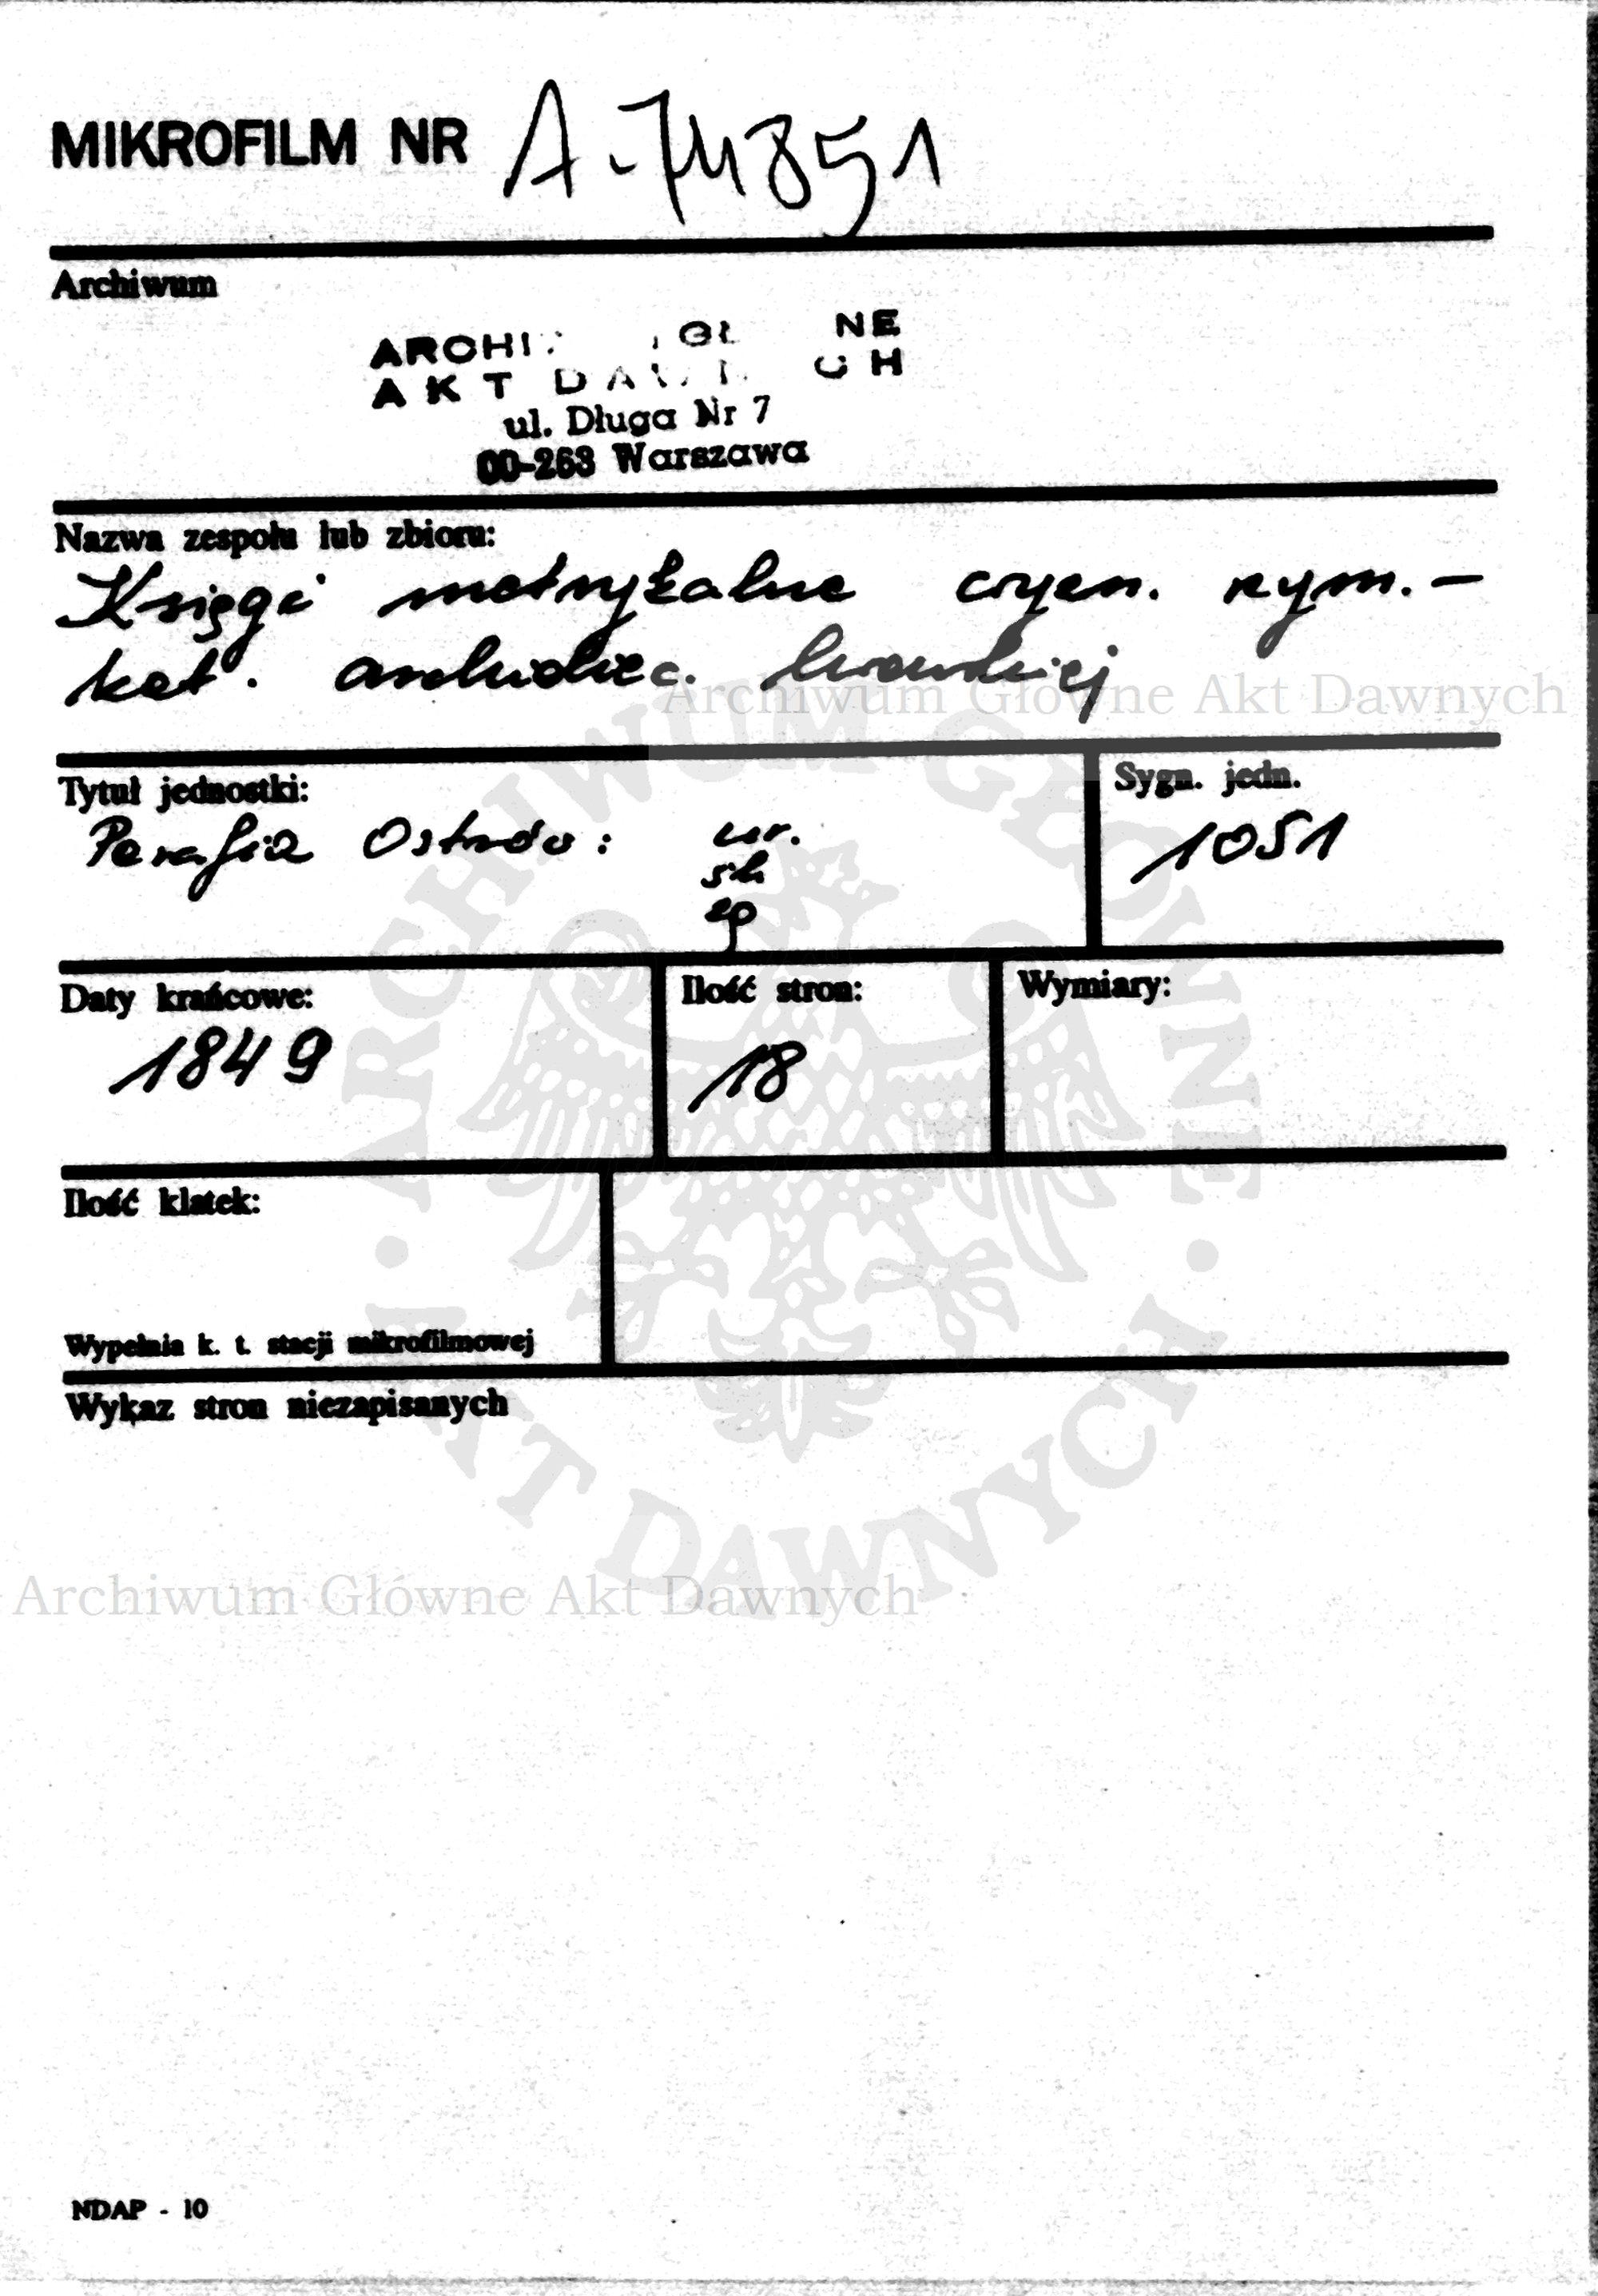 MIKROFILM NR A-74851
Archiwum
ARCHI GŁ NE
AKT DAWN CH
ul. Długa Nr 7
00-263 Warszawa
Nazwa zespołu lub zbioru:
Księgi metrykalne rzym. -
kat. archidiec. lwowskiej
Archiwum Główne Akt Dawnych
Tytuł jednostki:
Sygn. jedn.
Parafia Ostrów: ur.
1051
śl
zg
Daty krańcowe:
Ilość stron:
Wymiary:
1849
18
Ilość klatek:
Wypełnia k. t. stacji mikrofilmowej
Wykaz stron niezapisanych
ARCHIWUM GŁÓWNE
AKT DAWNYCH
Archiwum Główne Akt Dawnych
NDAP - 10